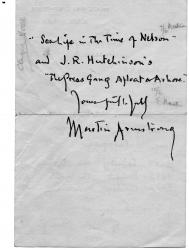 "Sea Life in the Time of Nelson"
and J. R. Hutchinson's
"The Press Gang Afloat & Ashore."
Yours faithfully
Martin Armstrong